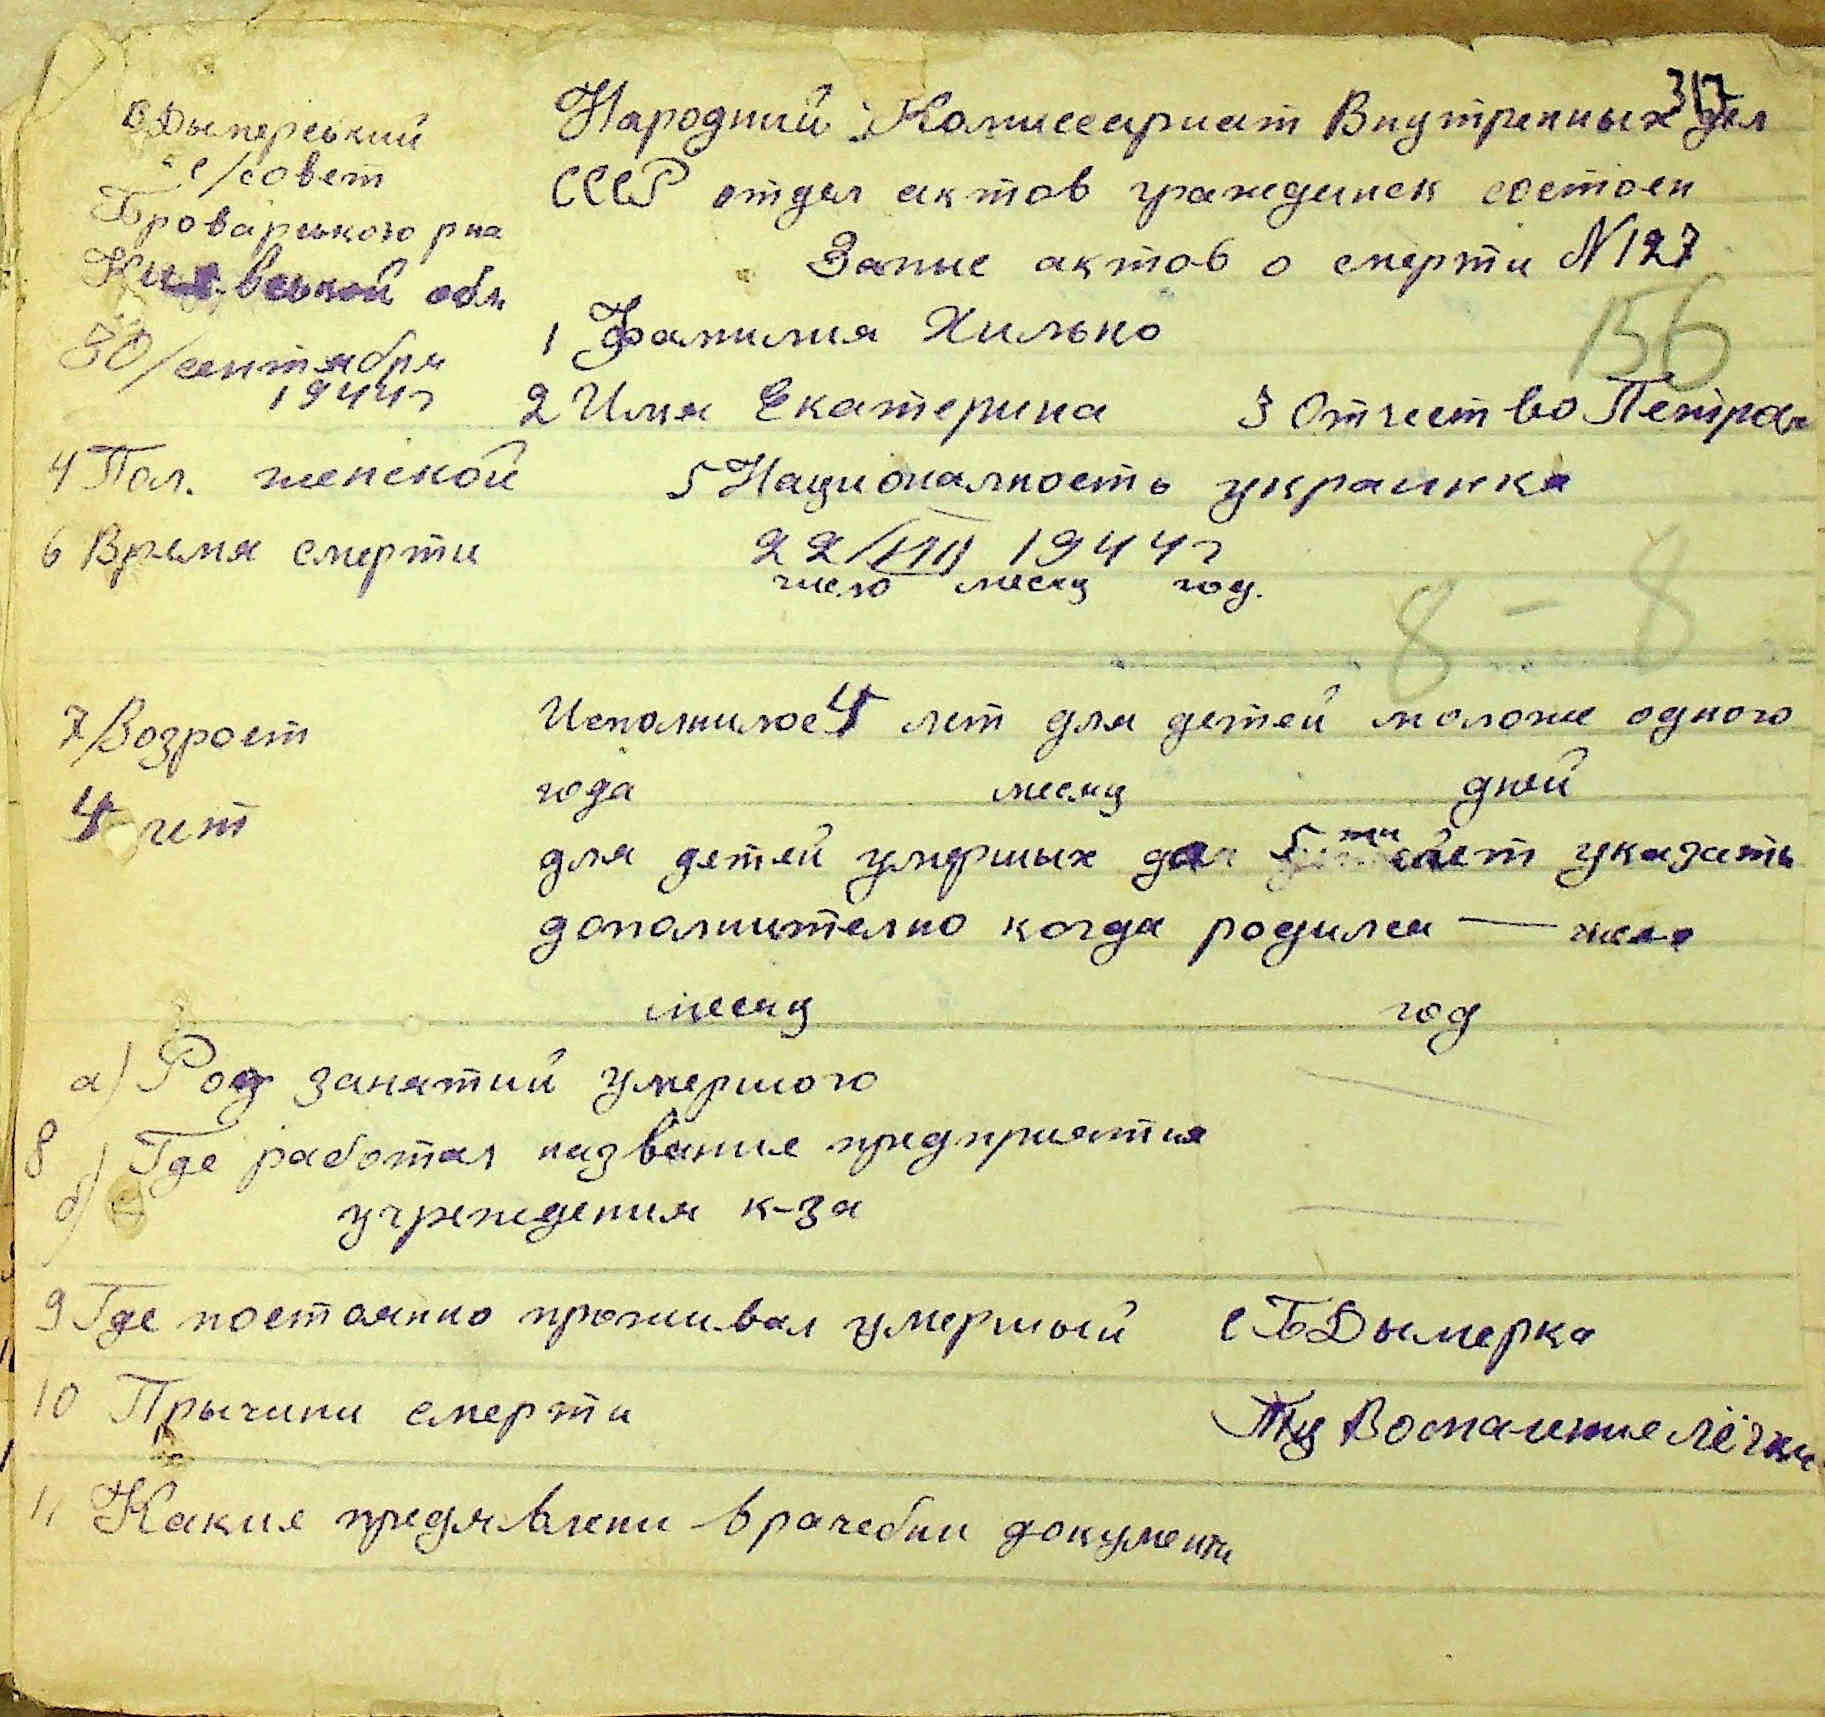 317
Народний Комиссариат Внутренных дел
СССР отдел актов гражданск состоян
Запис актов о смерти N 127
Дымерський
с/совет
Броварського рна
Киевськой обл
30/сентября
1944г
156
1 Фамилия Хилько
2 Имя Екатерина 3 Отчество Петров
4 Пол. женской 5 Националность украинка
6 Время смерти 22/VIII 1944г
число месяц год.
8 - 8
7/Возрост Исполнилос 4 лет для детей моложе одного
4 лет года месяц дней
для детей умерших до 5 ти лет указать
дополнително когда родился — число
месяц год
а) Род занятий умершого
8
б) Где работал название предприятия
учреждения к-за
9 Где постоянно проживал умерший с Б Дымерка
10 Прычини смерти Воспаление лёгки
11 Какие предявлени врачебни документи